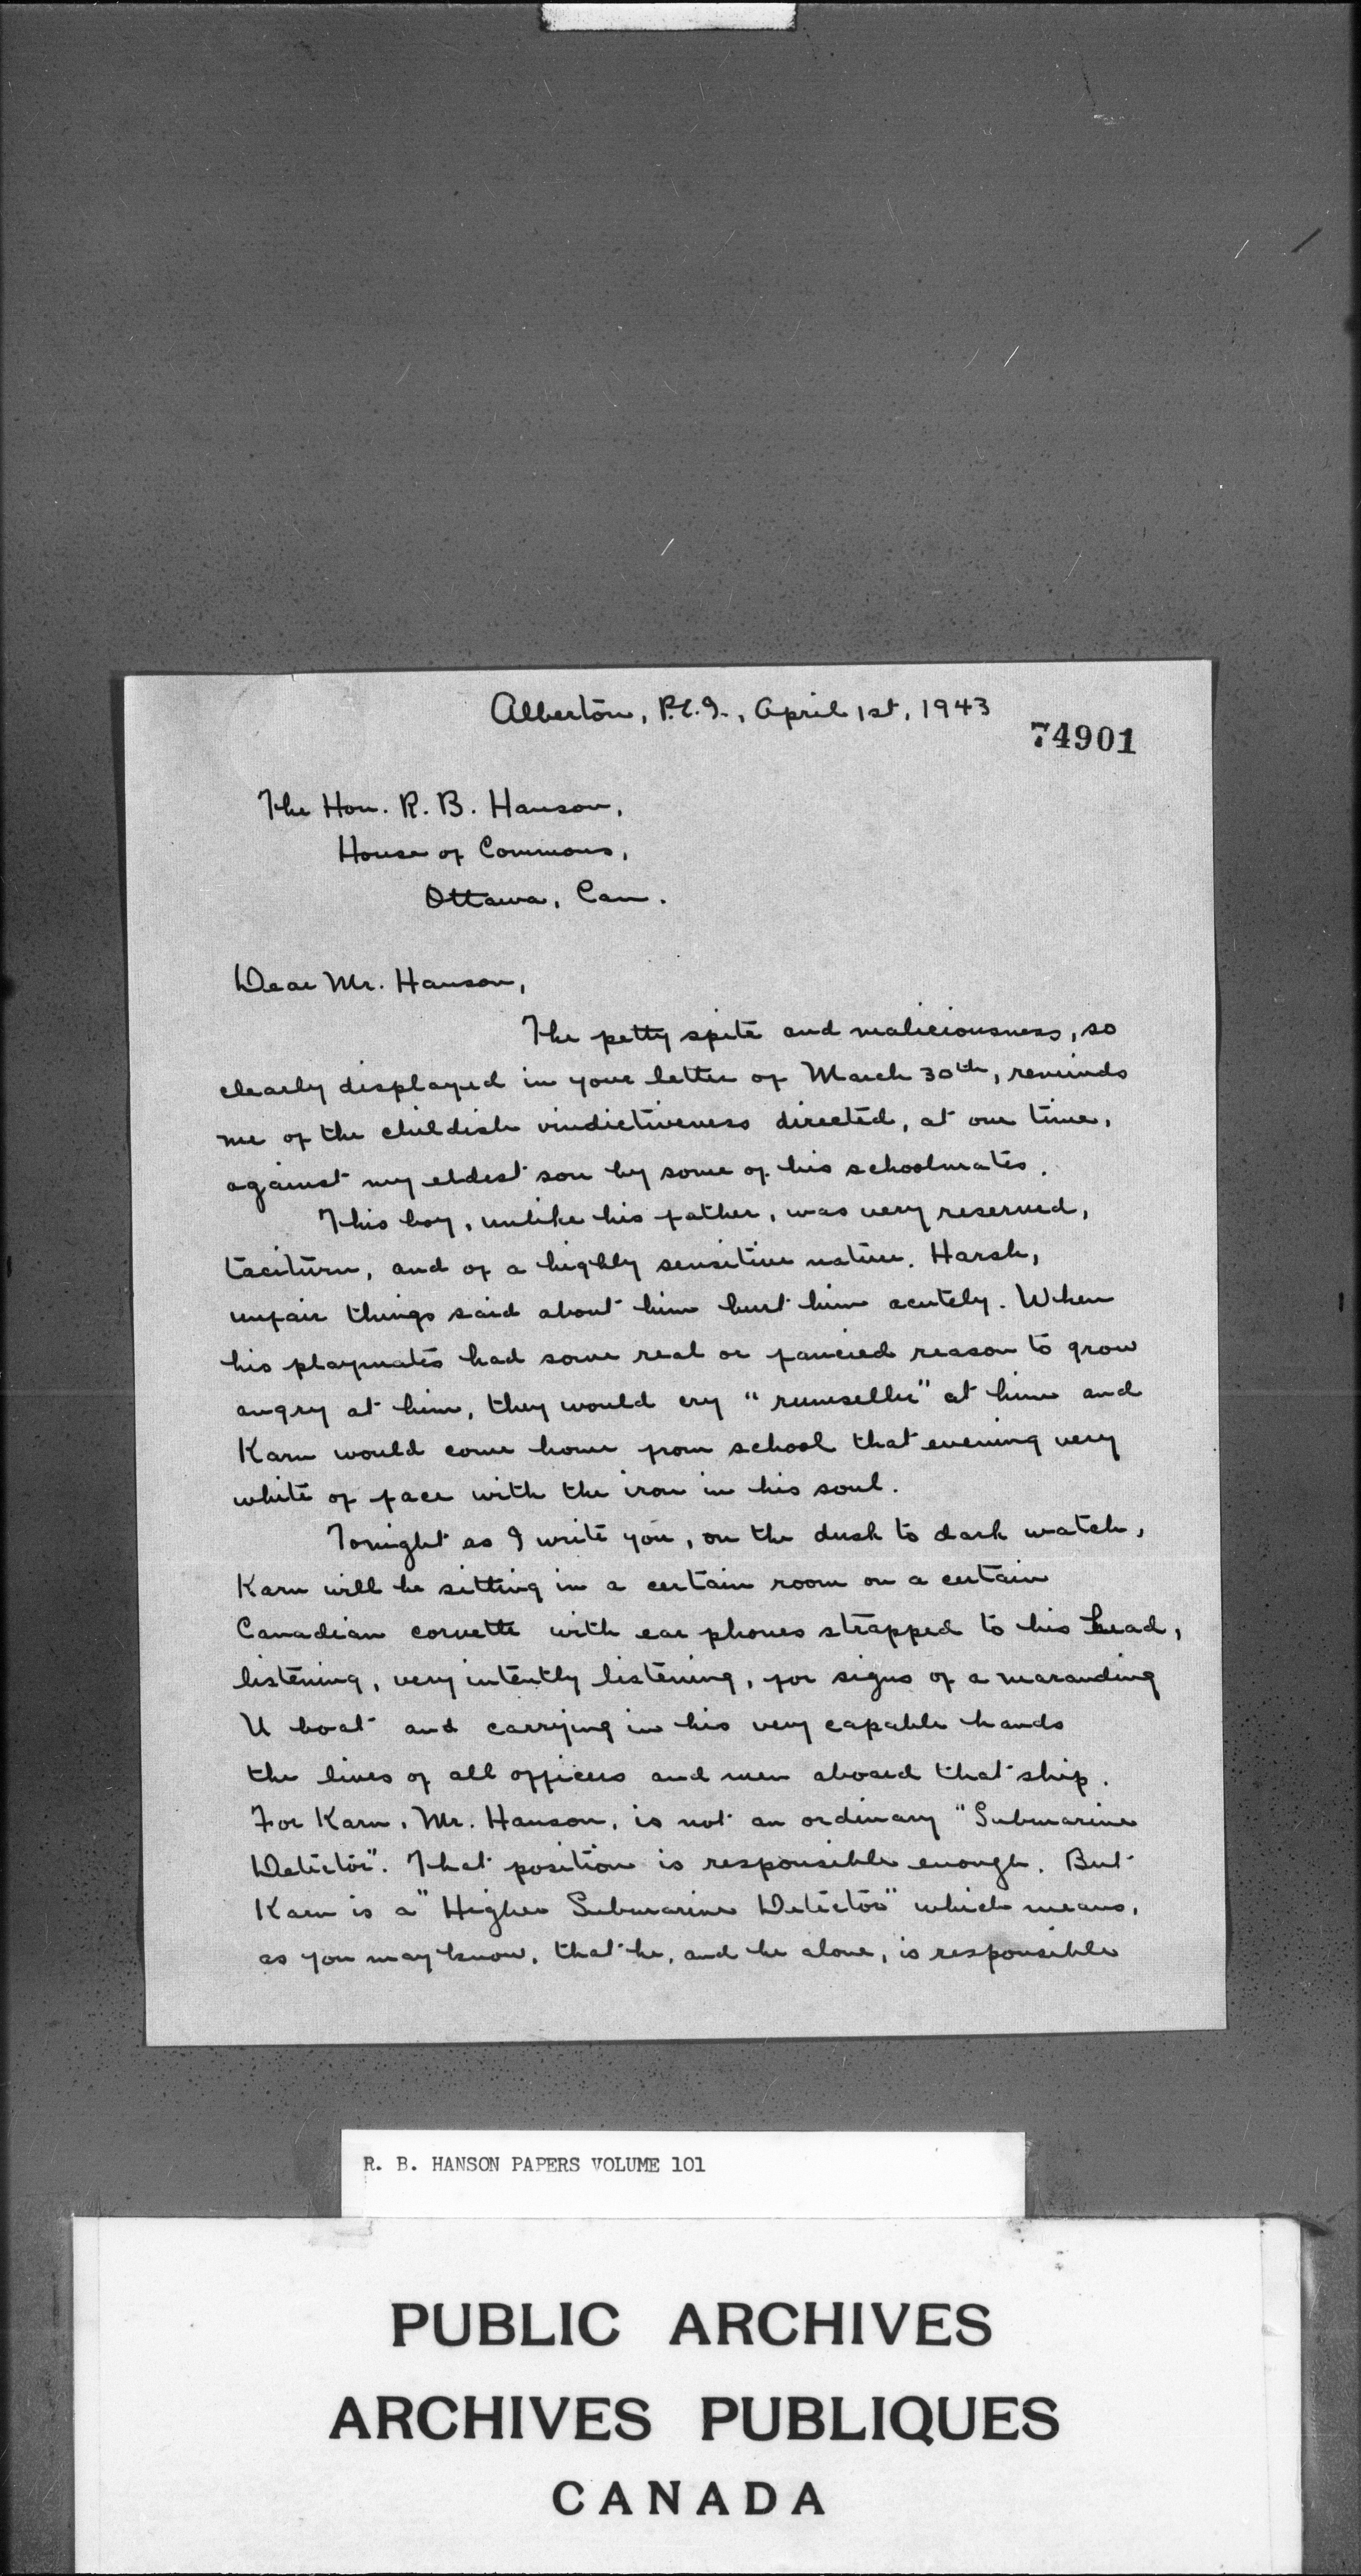 Alberton, P.E.I., April 1st, 1943
74901
The Hon. R. B. Hanson,
House of Commons,
Ottawa, Can.
Dear Mr. Hanson,
The petty spite and maliciousness, so
clearly displayed in your letter of March 30th, reminds
me of the childish vindictiveness directed, at one time,
against my eldest son by some of his schoolmates.
This boy, unlike his father, was very reserved,
taciturn, and of a highly sensitive nature. Harsh,
unfair things said about him hurt him acutely. When
his playmates had some real or fancied reason to grow
angry at him, they would cry "rumseller" at him and
Karn would come home from school that evening very
white of face with the iron in his soul.
Tonight as I write you, on the dusk to dark watch,
Karn will be sitting in a certain room on a certain
Canadian corvette with ear phones strapped to his head,
listening, very intently listening, for signs of a marauding
U boat and carrying in his very capable hands
the lives of all officers and men aboard that ship.
For Karn, Mr. Hanson, is not an ordinary "Submarine
Detector". That position is responsible enough. But
Karn is a "Higher Submarine Detector" which means,
as you may know, that he, and he alone, is responsible
R. B. HANSON PAPERS VOLUME 101
PUBLIC ARCHIVES
ARCHIVES PUBLIQUES
CANADA